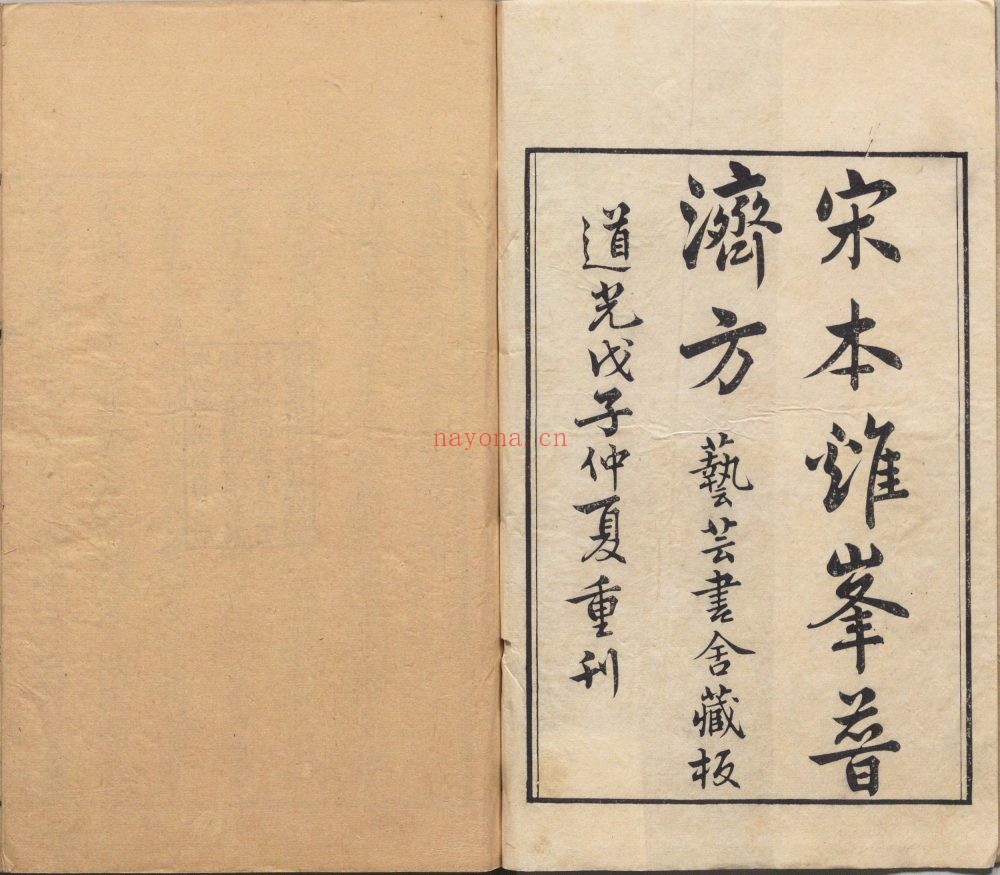 宋本雞峯普
濟方
藝芸書舍藏板
道光戊子仲夏重刊
nayona.cn